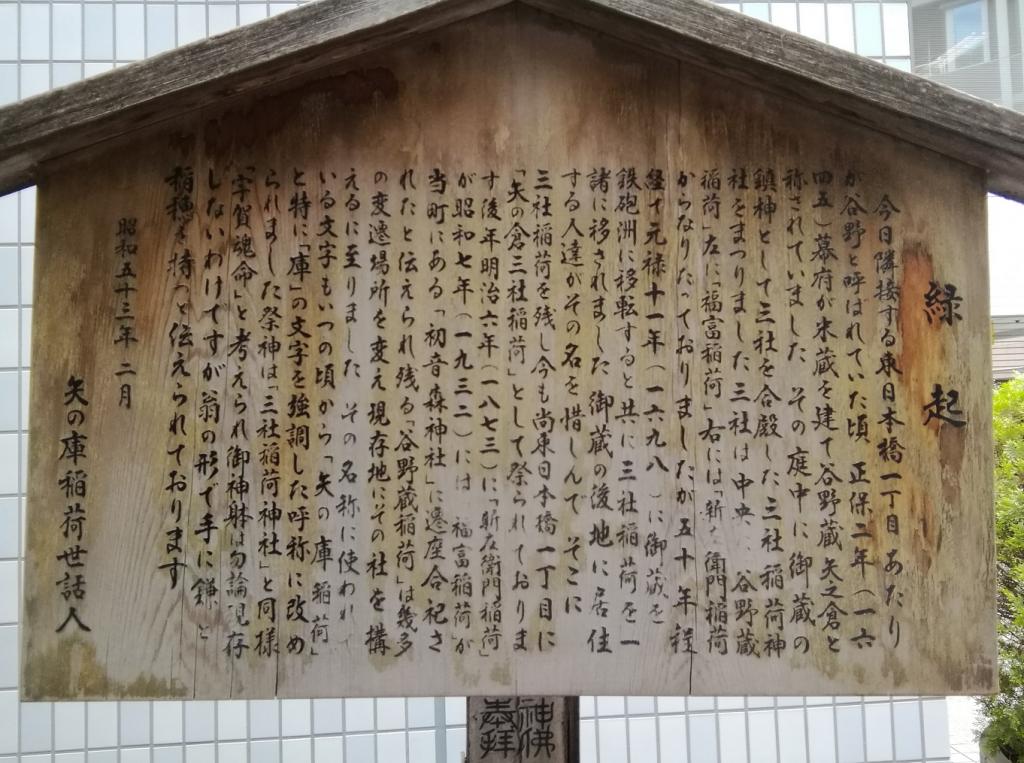 縁起
今日隣接する東日本橋一丁目あたり
が谷野と呼ばれていた頃 正保二年(一六
四五)幕府が米蔵を建て谷野蔵 矢之倉と
称されていました その庭中に御蔵の
鎮神として三社を合殿した三社稲荷神
社をまつりました三社は中央 谷野蔵
稲荷」左に「福富稲荷」右には「斬 衛門稲荷
からなりたっておりましたが五十年程
経て元禄十一年(一六九八)に御蔵を
鉄砲洲に移転すると共に三社稲荷を一
諸に移されました御蔵の後地に居住
する人達がその名を惜しんで そこに
三社稲荷を残し今も尚東日本橋一丁目に
「矢の倉三社稲荷」として祭られておりま
す後年明治六年(一八七三)に「斬左衛門稲荷」
が昭和七年(一九三二)には 福富稲荷が
当町にある「初音森神社」に遷座合祀さ
れたと伝えられ残る「谷野蔵稲荷」は幾多
の変遷場所を変え現存地にその社を構
えるに至りました その名称に使われ
いる文字もいつの頃から「矢の庫 稲荷」
と特に「庫」の文字を強調した呼称に改め
られました祭神は「三社稲荷神社」と同様
「宇賀魂命」と考えられ御神躰は勿論現存
しないわけですが翁の形で手に鎌と
稲穂を持つと伝えられております
昭和五十三年 二月
矢の庫稲荷世話人
神佛
奉拝